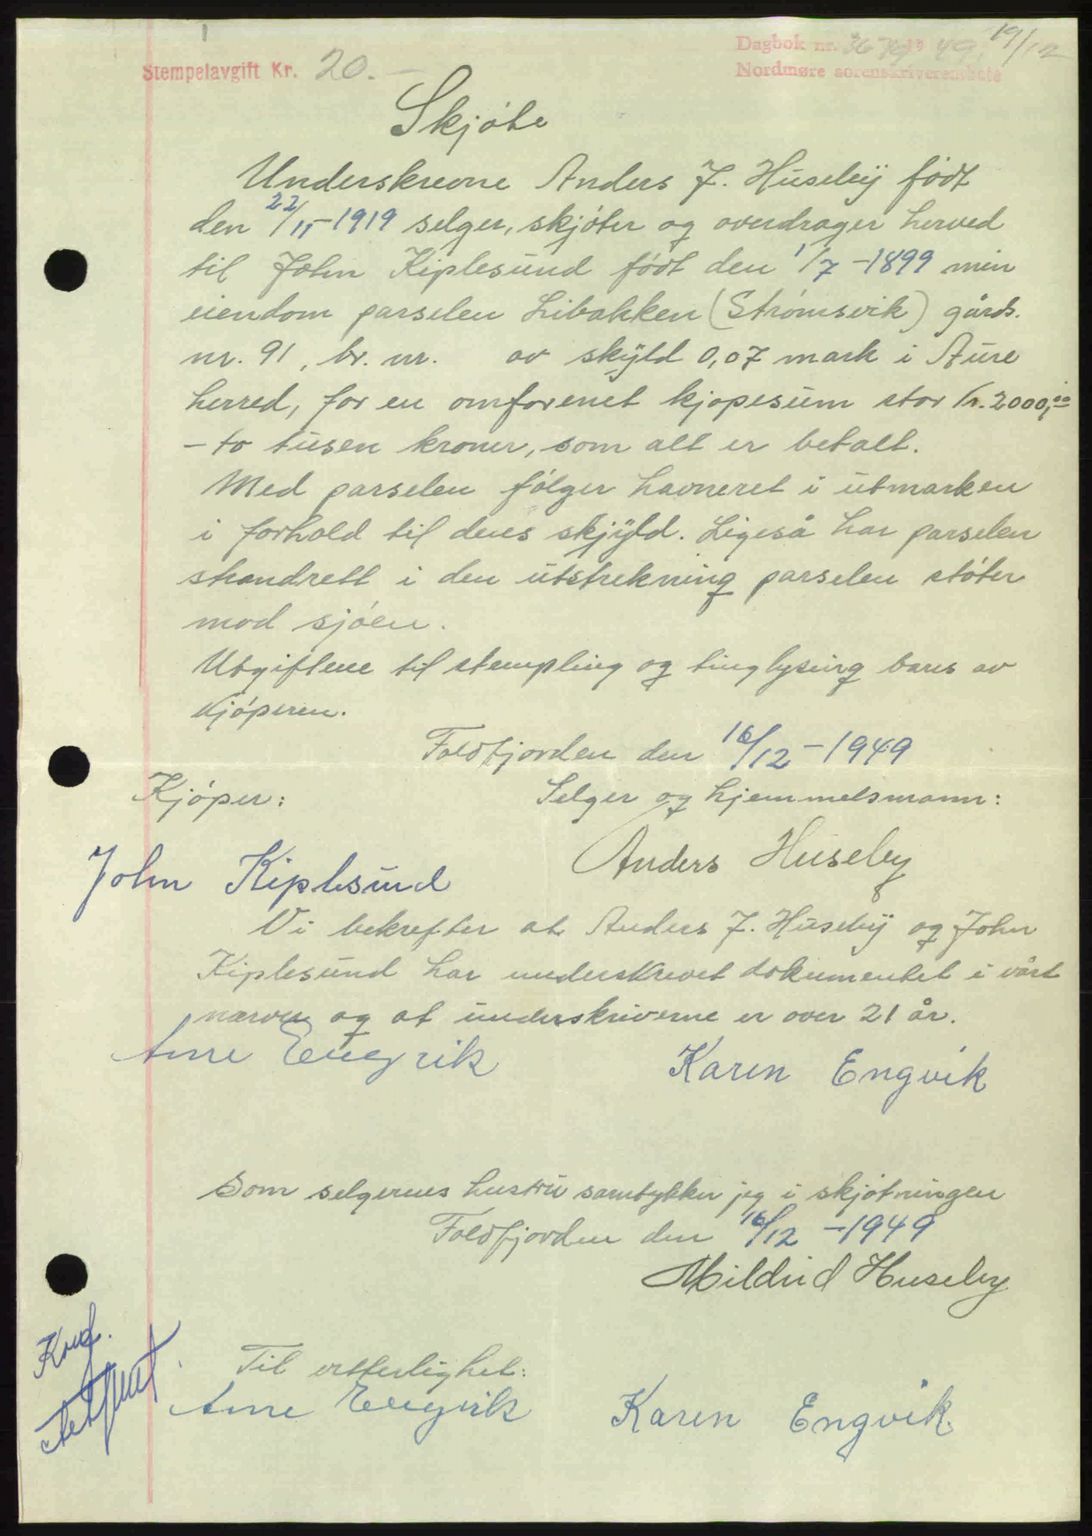 Stempelavgift Kr. 20.-
Dagbok nr. 49 19/12
Nordmøre sorenskriverembete
Skjøte
Underskrevne Anders J. Huseby født
den 22/11-1919 selger, skjøter og overdrager herved
til John Kiplesund født den 1/7-1899 min
eiendom parselen Libakken (Strømsvik) gårds.
nr. 91, br. nr. av skyld 0,07 mark i Aure
herred, for en omforenet kjøpesum stor kr. 2000,00
- to tusen kroner, som alt er betalt.
Med parselen følger havneret i utmarken
i forhold til denes skjyld. Ligeså har parselen
strandrett i den utstrekning parselen støter
mod sjøen.
Utgiftene til stempling og tinglysing bæres av
kjøperen.
Foldfjorden den 16/12-1949
Kjøper: Selger og hjemmelsmann:
John Kiplesund Anders Huseby
Vi bekrefter at Anders J. Huseby og John
Kiplesund har underskrevet dokumentet i vårt
nærver og at underskriverne er over 21 år.
Arne Engvik Karen Engvik
Som selgerens hustru samtykker jeg i skjøtningen
Foldfjorden den 16/12-1949
Mildrid Huseby
Til vitterlighet:
Arne Engvik Karen Engvik